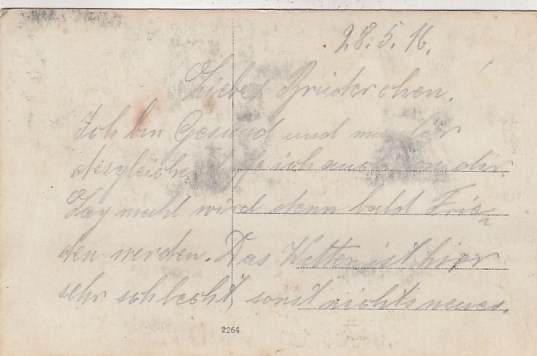 28.5.16.
Liebes Brüderchen.
Ich bin Gesund und
desgleich ich auch von dir.
wird denn bald Frie=
den werden. Das Wetter ist hier
sehr schlecht, sonst nichts neues.
2264